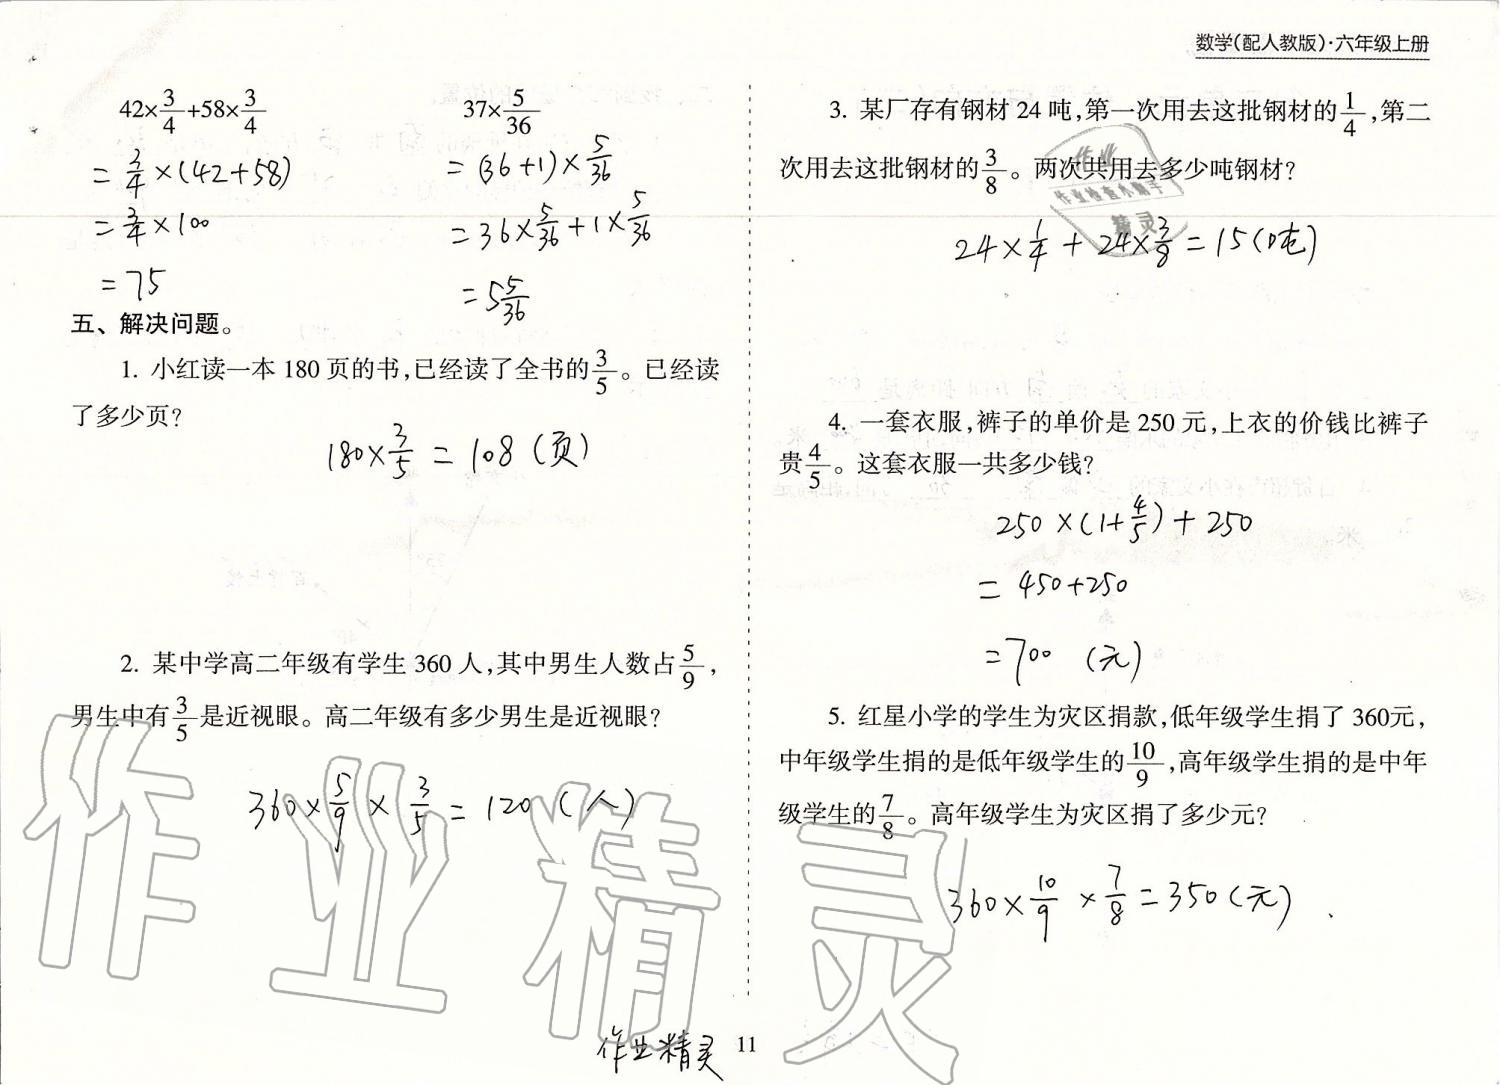 数学(配人教版)·六年级上册
42×3/4+58×3/4
=3/4×(42+58)
=3/4×100
=75
37×5/36
=(36+1)×5/36
=36×5/36+1×5/36
=5 5/36
五、解决问题。
1. 小红读一本 180 页的书,已经读了全书的3/5。已经读
了多少页?
180×3/5=108(页)
2. 某中学高二年级有学生 360 人,其中男生人数占5/9,
男生中有3/5是近视眼。高二年级有多少男生是近视眼?
360×5/9×3/5=120(人)
3. 某厂存有钢材 24 吨,第一次用去这批钢材的1/4,第二
次用去这批钢材的3/8。两次共用去多少吨钢材?
24×1/4+24×3/8=15(吨)
4. 一套衣服,裤子的单价是 250 元,上衣的价钱比裤子
贵4/5。这套衣服一共多少钱?
250×(1+4/5)+250
=450+250
=700(元)
5. 红星小学的学生为灾区捐款,低年级学生捐了 360元,
中年级学生捐的是低年级学生的10/9,高年级学生捐的是中年
级学生的7/8。高年级学生为灾区捐了多少元?
360×10/9×7/8=350(元)
作业
作业检查小助手
精灵
作业精灵
作业精灵
11